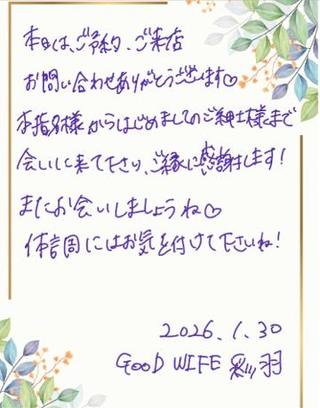 本日は、ご予約、ご来店
お問い合わせありがとうございます♡
本指名様からはじめましてのご紳士様まで
会いに来て下さり、ご縁に感謝します!
またお会いしましょうね♡
体調にはお気を付けて下さいね!
2026.1.30
GOOD WIFE 彩羽